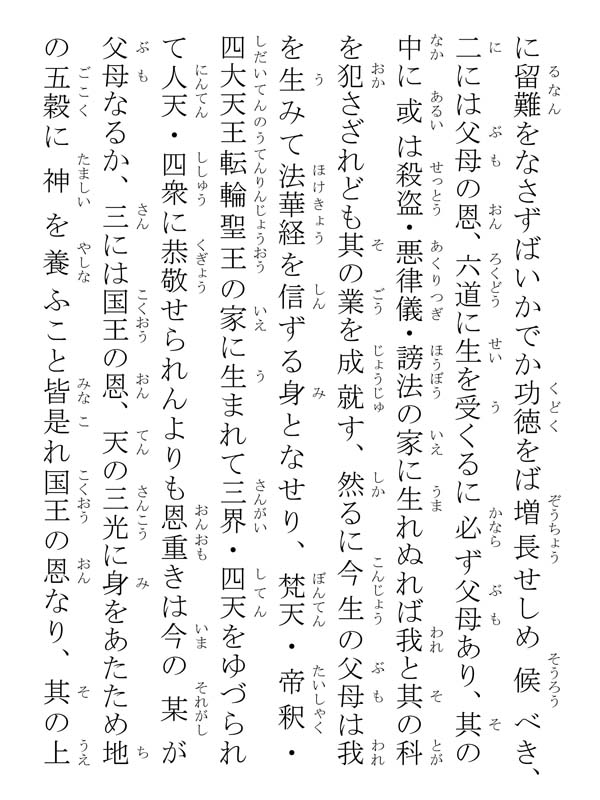 に留難をなさずばいかでか功徳をば増長せしめ候べき、
二には父母の恩、六道に生を受くるに必ず父母あり、其の
中に或は殺盗・悪律儀・謗法の家に生れぬれば我と其の科
を犯さざれども其の業を成就す、然るに今生の父母は我
を生みて法華経を信ずる身となせり、梵天・帝釈・
四大天王転輪聖王の家に生まれて三界・四天をゆづられ
て人天・四衆に恭敬せられんよりも恩重きは今の某が
父母なるか、三には国王の恩、天の三光に身をあたため地
の五穀に神を養ふこと皆是れ国王の恩なり、其の上